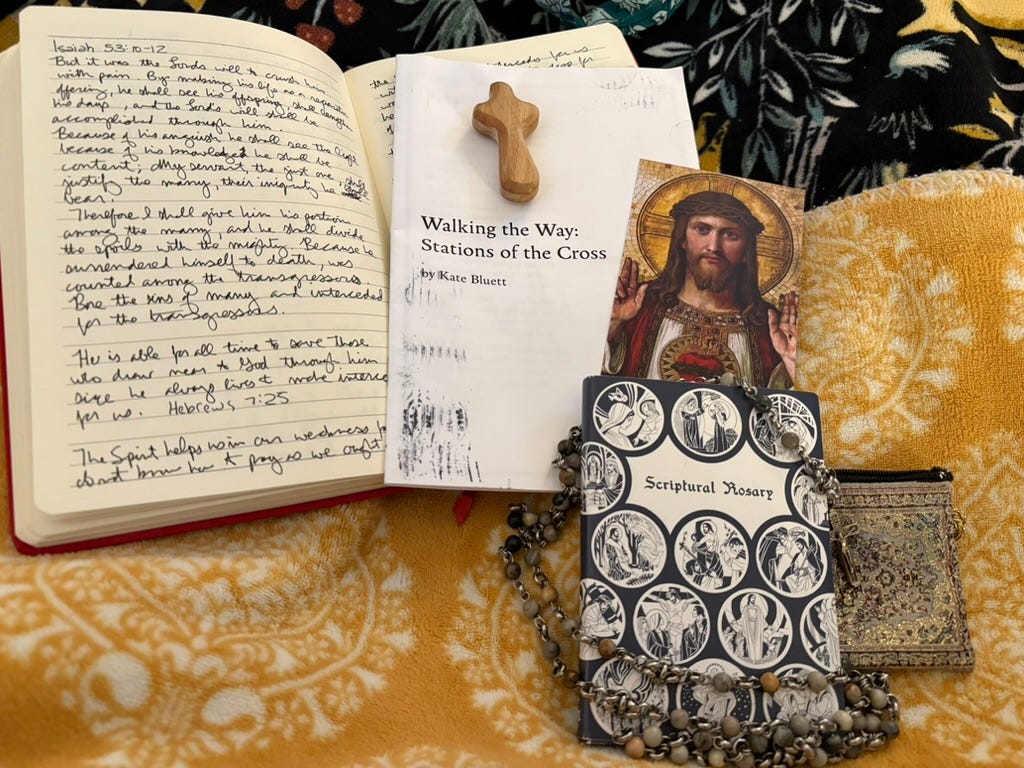 Isaiah 53:10-12
But it was the Lord's will to crush him
with pain. By making his life as a reparation
offering, he shall see his offspring, shall lengthen
his days, and the Lord's will shall be
accomplished through him.
Because of his anguish he shall see the light
because of his knowledge he shall be
content; My servant, the just one, shall
justify the many, their iniquity he
bear.
Therefore I shall give him his portion
among the many, and he shall divide
the spoils with the mighty. Because he
surrendered himself to death, was
counted among the transgressors.
Bore the sins of many and interceded
for the transgressors.
He is able for all time to save those
who draw near to God through him
since he always lives to make interce
for us. Hebrews 7:25
The Spirit helps us in our weakness
do not know how to pray as we ought
the
for us
for
Walking the Way:
Stations of the Cross
by Kate Bluett
Scriptural Rosary